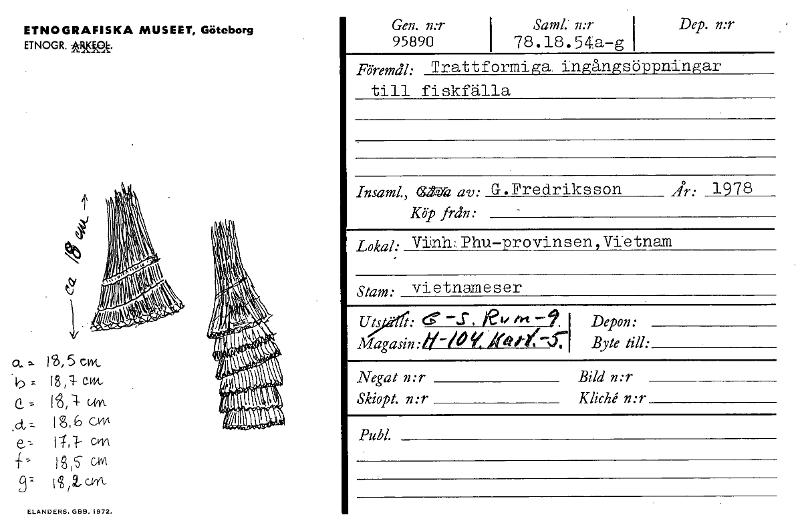 ETNOGRAFISKA MUSEET, Göteborg
ETNOGR. ARKEOL.
ca 18 cm
a = 18,5 cm
b = 18,7 cm
c = 18,7 cm
d = 18,6 cm
e = 17,7 cm
f = 18,5 cm
g = 18,2 cm
ELANDERS. GBG. 1972.
Gen. n:r Saml. n:r Dep. n:r
95890 78.18.54a-g
Föremål: Trattformiga ingångsöppningar
till fiskfälla
Insaml., Gåva av: G.Fredriksson År: 1978
Köp från: -
Lokal: Vinh Phu-provinsen,Vietnam
Stam: vietnameser
Utställt: G-S. Rum-9. Depon:
Magasin: H-104. Kart.-5. Byte till:
Negat n:r Bild n:r
Skiopt. n:r Kliché n:r
Publ.